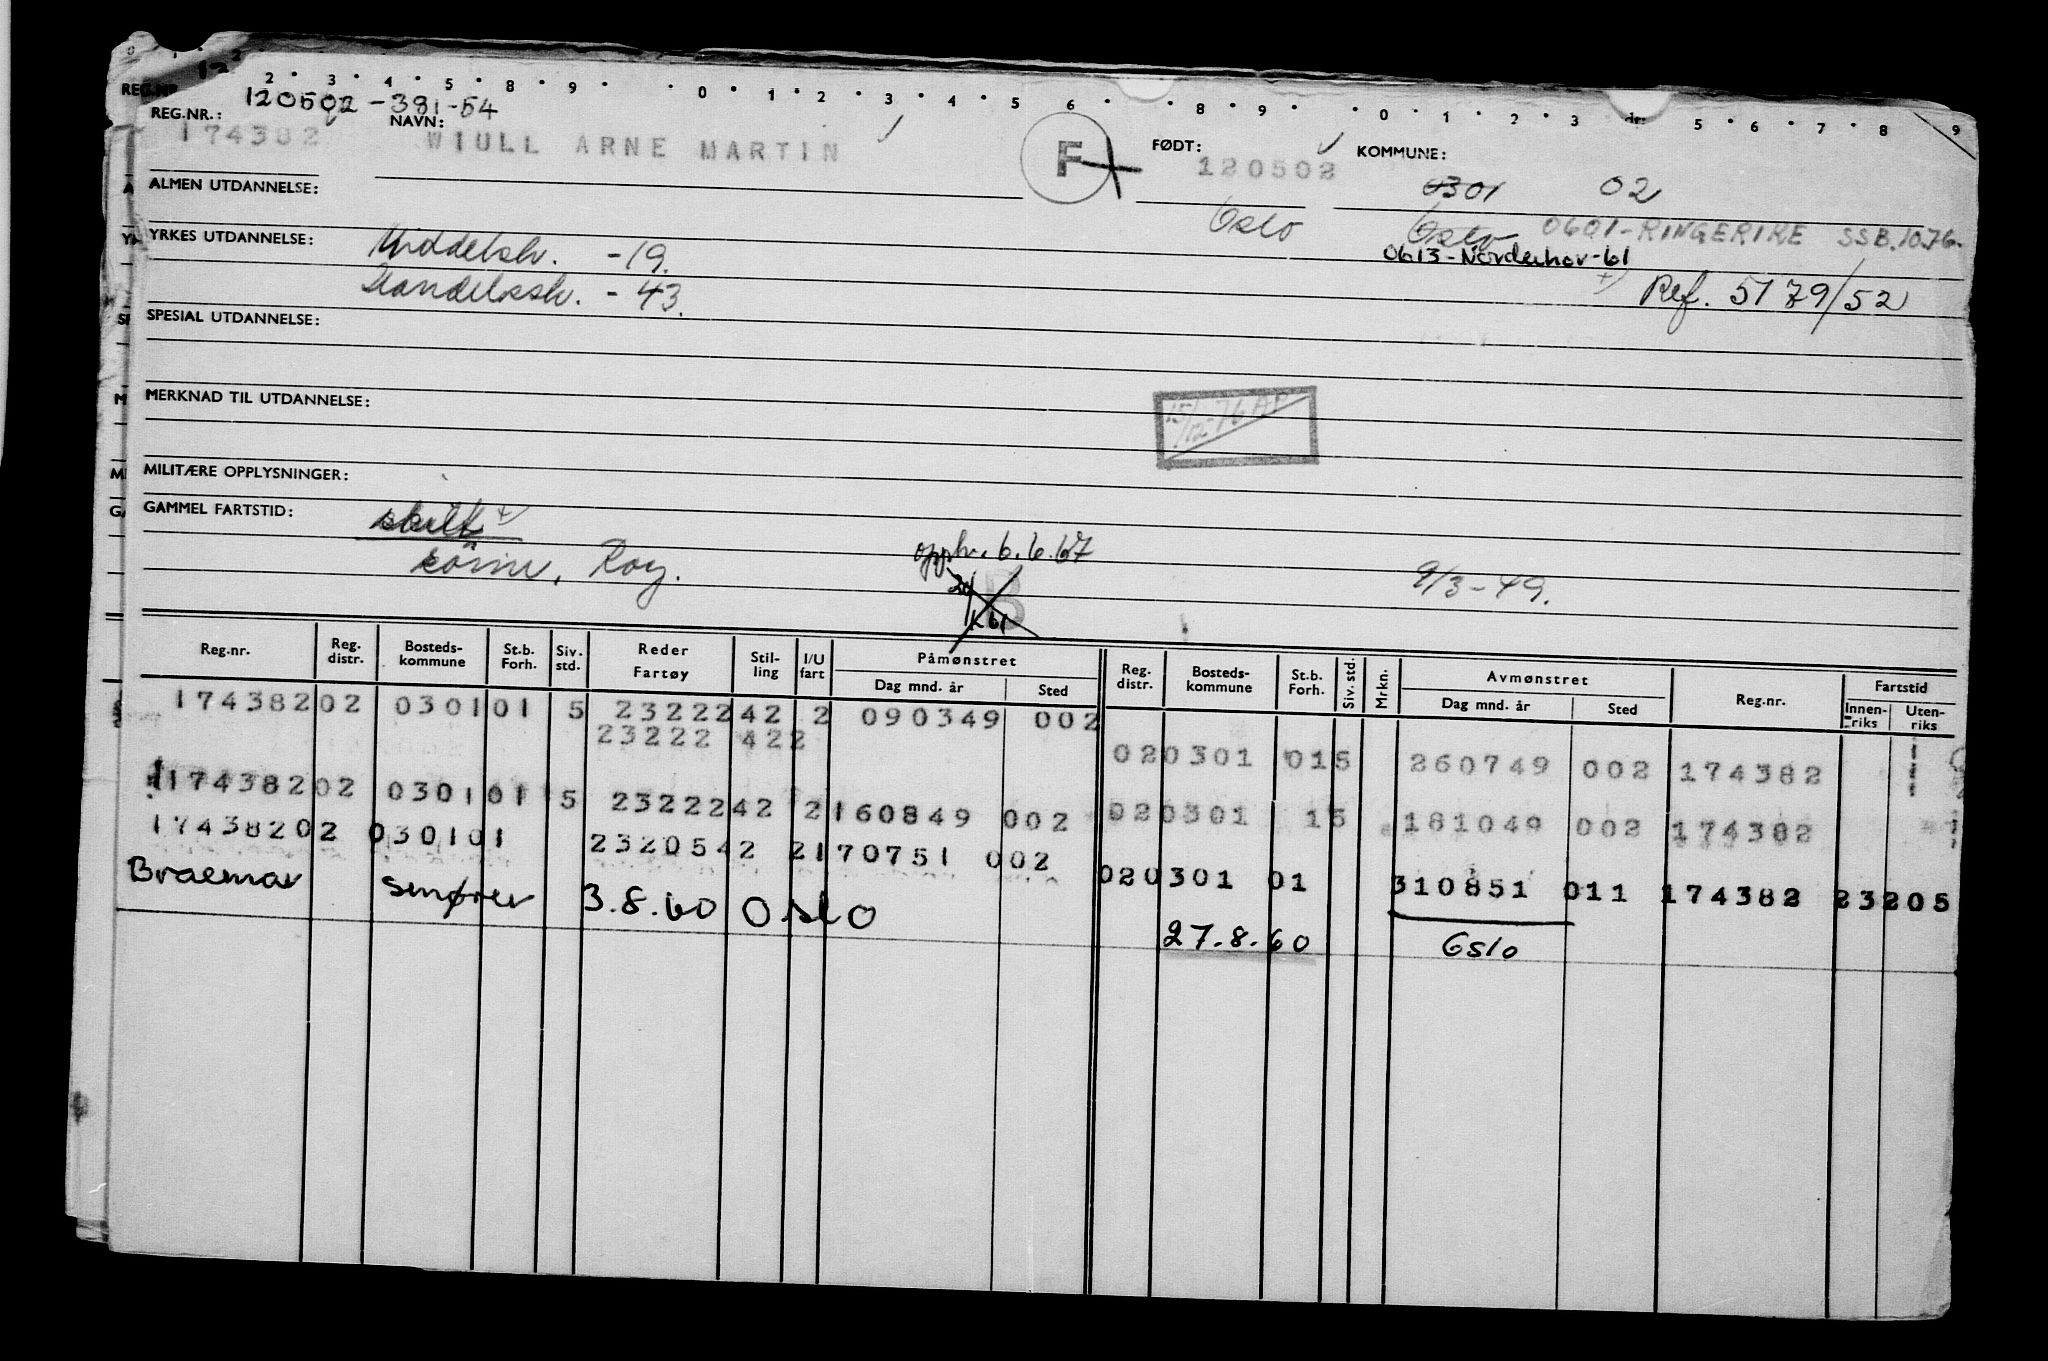 2 3 4 5 8 9 0 1 2 3 4 5 6 8 9 0 1 2 3 5 6 7 8 9
REG.NR.: 120502-391-54 NAVN:
174382 WIULL ARNE MARTIN F FØDT: 120502 KOMMUNE:
0301 02
ALMEN UTDANNELSE:
Oslo Oslo 0601-RINGERIKE SSB.10.76.
YRKES UTDANNELSE: Middelsk. -19. 0613-Norderhov-61
Handelssk. -43. Ref. 5179/52
SPESIAL UTDANNELSE:
MERKNAD TIL UTDANNELSE: 15/12-76 AP
MILITÆRE OPPLYSNINGER:
GAMMEL FARTSTID: skilt
Roy. opph. 6.6.67 9/3-49.
B
Reg.nr. Reg. distr. Bosteds-kommune St.b. Forh. Siv. std. Reder Fartøy Stil-ling I/U fart Påmønstret Dag mnd. år Sted Reg. distr. Bosteds-kommune St.b. Forh. Siv. std. Mrkn. Avmønstret Dag mnd. år Sted Reg.nr. Fartstid Innen-riks Uten-riks
174382 02 0301 01 5 23222 42 2 090349 002
23222 42 2 02 0301 01 5 260749 002 174382
174382 02 0301 01 5 23222 42 2 160849 002 02 0301 1 5 181049 002 174382
174382 02 0301 01 23205 42 2 170751 002 02 0301 01 310851 011 174382 23205
Braemar smører 3.8.60 Oslo 27.8.60 Oslo